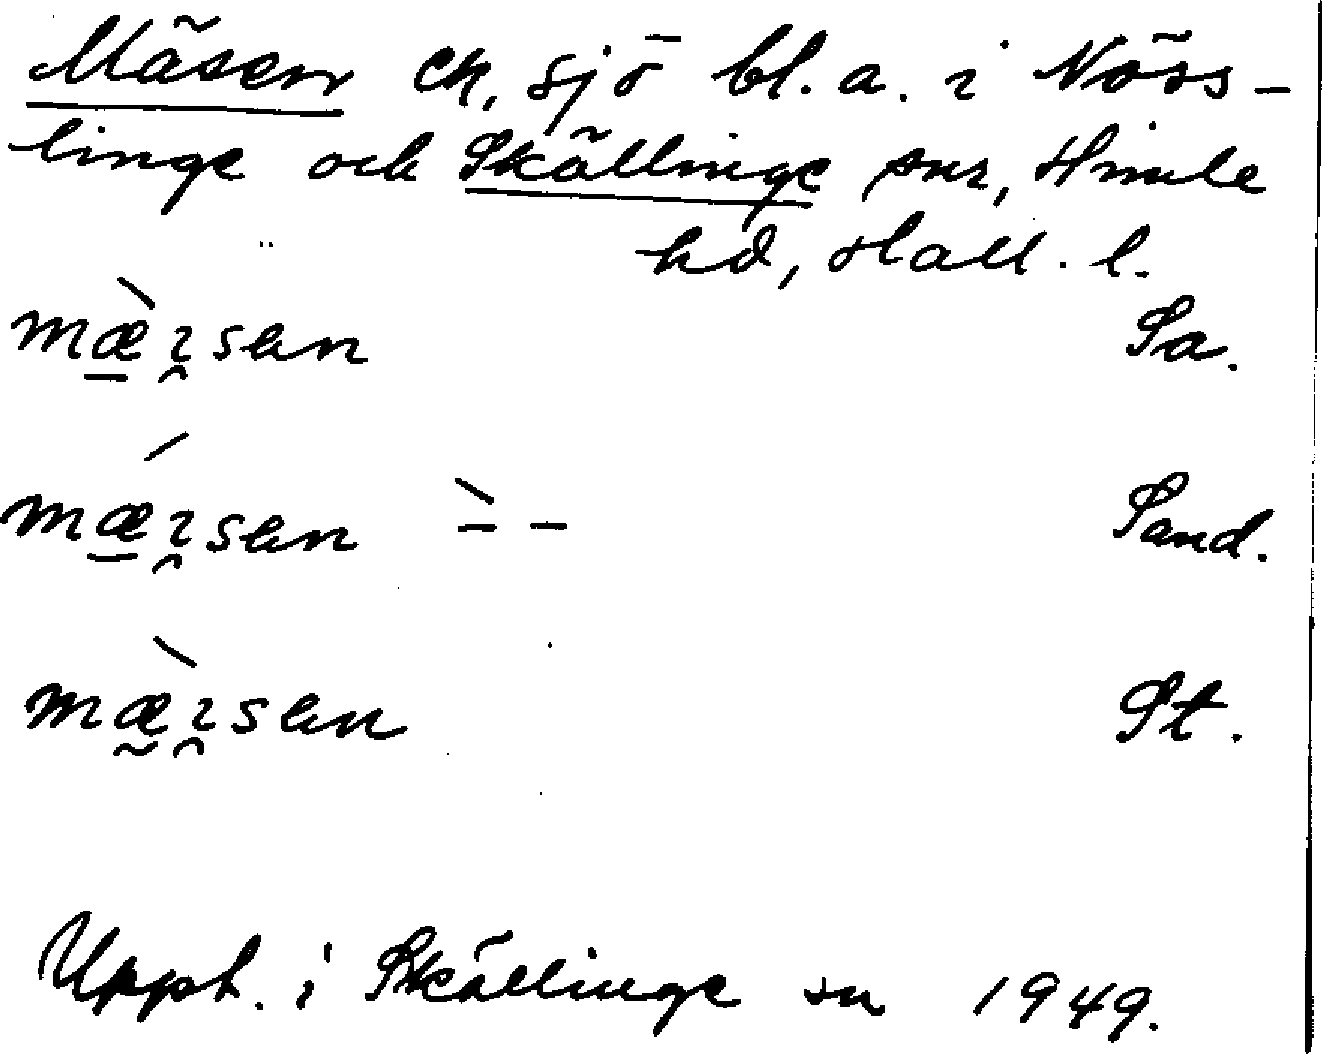 Mäsen ek, sjö bl. a. i Nöss-
linge och Skällinge snr, Himle
hd, Hall. l.
mæ̀ɿsen Sa.
mǽɿsen ̀- - Sand.
mæ̀ɿsen St.
Uppt. i Skällinge sn 1949.